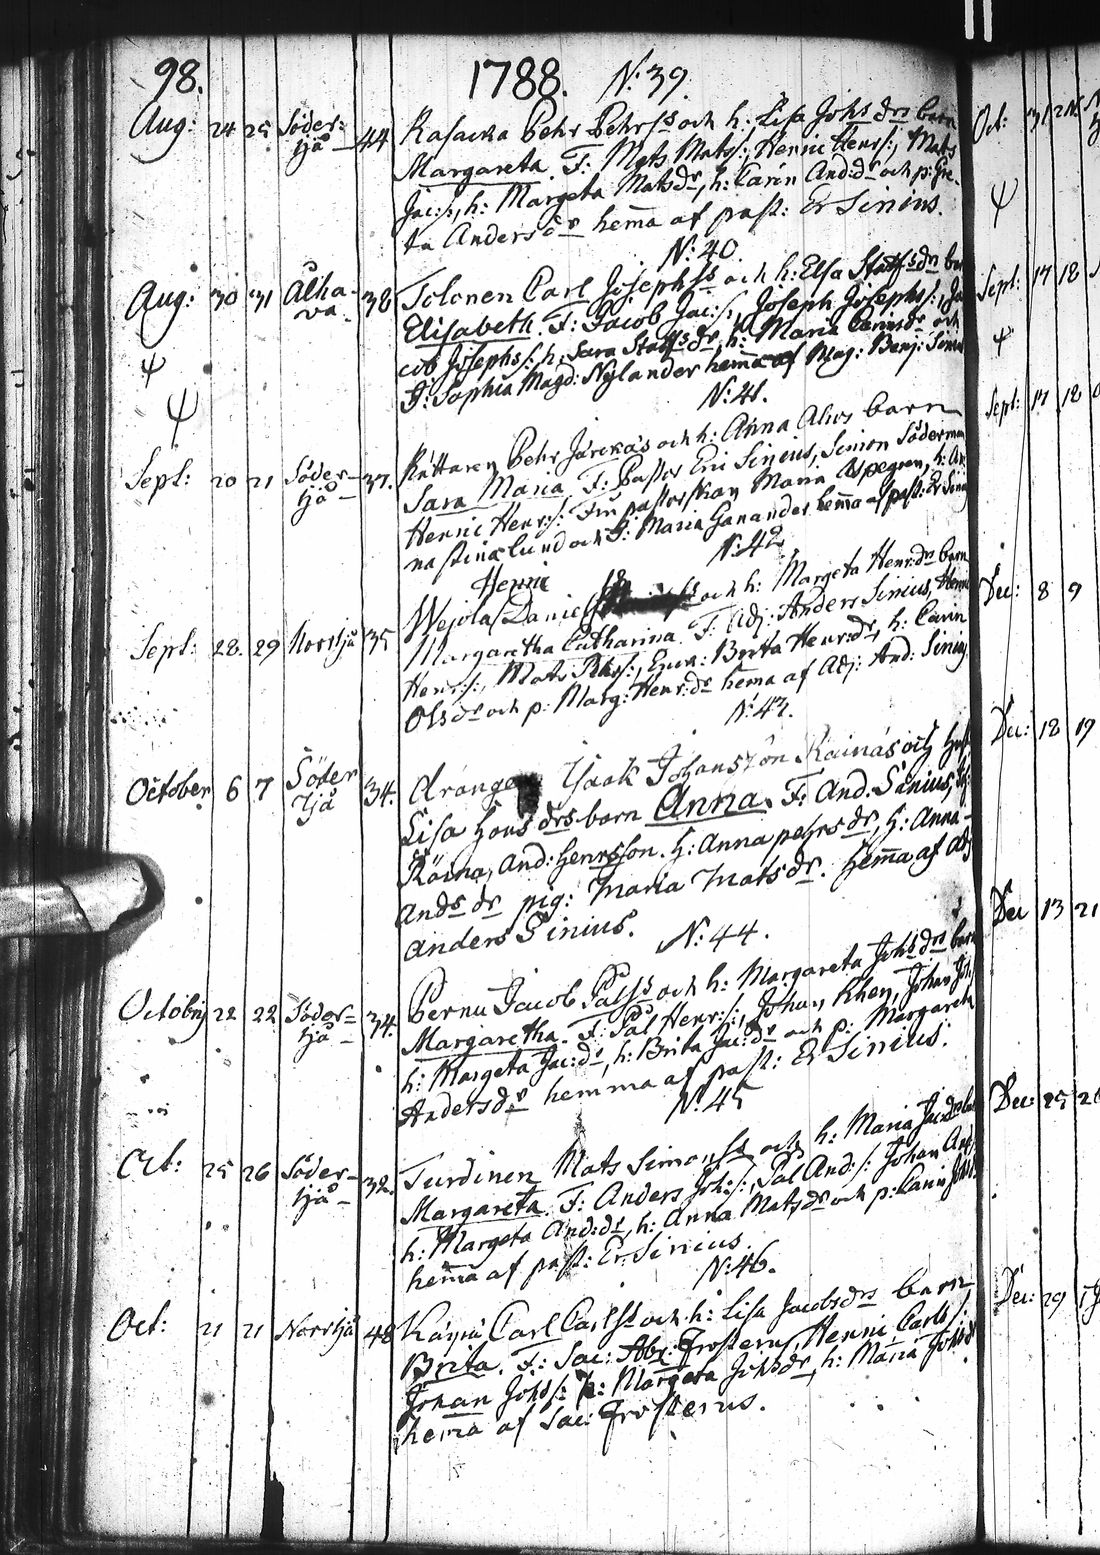 98. 1788. N:39.
Aug: 24 25 Söder- 44 Kasacka Pehr Pehrss och h: Lisa Johs drs barn
sjå Margareta. F: Mats Mats/:, Henric Henrs/:, Mats
Jac:/:, h: Margeta Matsdr, h: Carin And:dr och p: Gre-
ta Anders dr hema af past: Er Sinius.
N:40.
Aug: 30 31 Alha- 38 Tolonen Carl Josephss och h: Elsa Staffsdrs
va. Elisabeth. F: Jacob Jac:/:, Joseph Josephs/:, Ja
cob Josephs/: h, Sara Staffsdr, h: Maria Carinsdr och
J: Sophia Magd: Nylander hema af Mag: Benj:
N:41.
Rättaren Pehr Järckäs och h: Anna Alws barn
Sept: 20 21 Söder- 37. Sara Maria. F: Pastor Eric Sinius, Simon Söderman
sjå Henric Henr/: Fru pastorskan Maria Aspegren, h: An
na Stina Lund och J: Maria Ganander hema af past: Er Sinius
N:42
Henric 18
Wejola Daniel och h: Margeta Henr:drs barn
Sept: 28. 29 Norrsjå 35 Margaretha Catharina. F: Adj: Anders Sinius, Henric
Henr/:, Mats, Brita Henr:dr, h: Carin
Ols dr och p: Marg: Henr:dr hema af Adj: And: Sinius
N:43.
October 6 7 Söder 34. drängen Isaak Johansson Räinäs och
sjå Lisa Hans drs barn Anna. F: And. Sinius,
Räina, And: Henrsson. h: Anna pehrs dr, h: Anna-
Ands dr pig: Maria Mats dr. hema af adj
anders Sinius. N:44.
22 22 Söder- 34. Pernu Jacob Palss och h: Margareta Johs drs barn
sjå Margaretha. F: Pål Henr:/:, Johan Khen, Johan Joh
h: Margeta Jac:dr, h: Brita Jac:dr och p: Margareta
Andersdr hemma af past: Er Sinius.
N:45
Oct: 25 26 Söder- 32. Turdinen Mats Simonss och h: Maria
sjå Margareta. F: Anders Joh:/:, Pål And:/: Johan And
h: Margeta And:dr, h: Anna Matsdr och p: Carin
hema af past: Er: Sinius.
N:46.
Oct: 21 21 Norrsjå 48 Carl Carlss och h: Lisa Jacobsdrs barn
Brita. F: Sac: Abr: Frosterus, Henric Carls/:
Johan Johs/: h: Margeta Johsdr, h: Maria Johsdr
hema af Sac: Frosterus.
Oct: 31
Sept: 17 18
Sept: 17 18
Dec: 8 9
Dec: 18 19
Dec 13 21
Dec: 25
Dec: 29